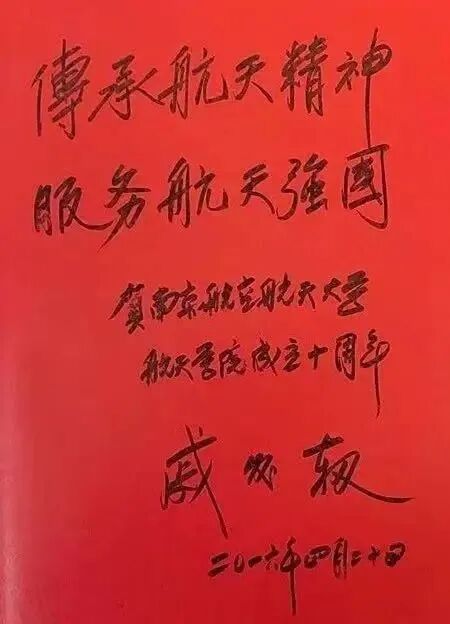 傳承航天精神
服务航天強國
贺南京航空航天大学
航天学院成立十周年
戚发轫
二〇一六年四月二十日